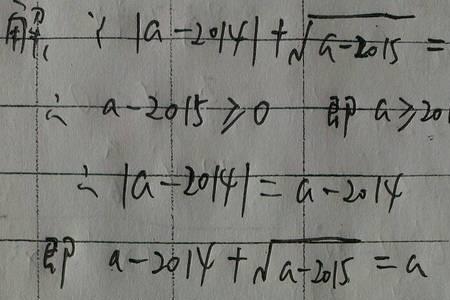 解: ∵ |a-2014|+√a-2015 =
∴ a-2015≥0 即 a≥20
∴ |a-2014|=a-2014
即 a-2014+√a-2015 =a